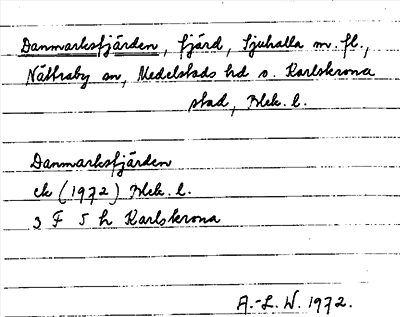 Danmarksfjärden, fjärd, Sjuhalla m. fl.,
Nättraby sn, Medelstads hd o. Karlskrona
stad, Blek. l.
Danmarksfjärden
ek (1972) Blek. l.
3 F 5 h Karlskrona
A.-L. W. 1972.